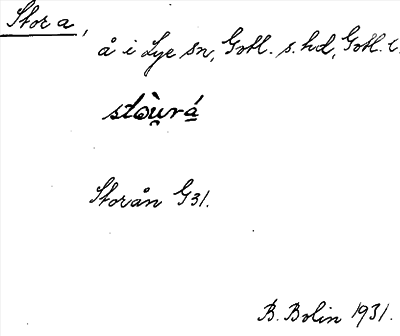 Stor a,
å i Lye sn, Gotl. s. hd, Gotl. l.
stòu̯rá̱
Storån G31.
B. Bolin 1931.